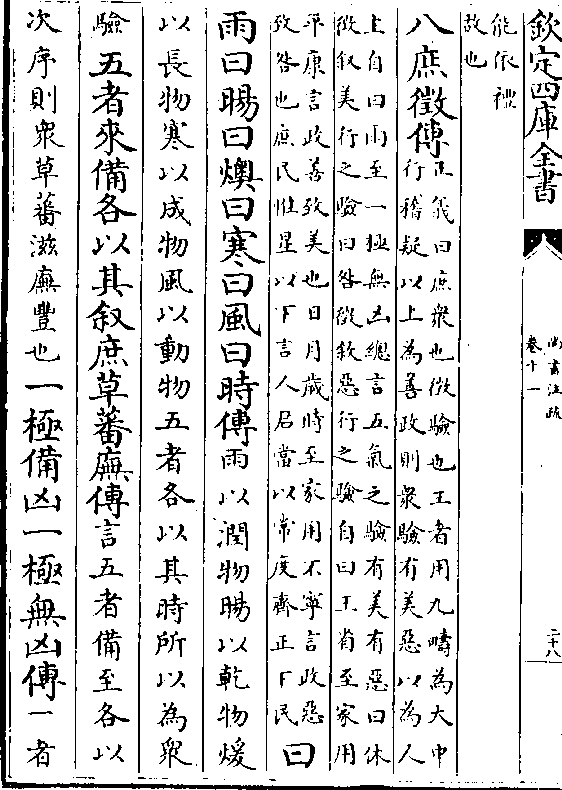 欽定四庫全書
尚書注疏
卷十一
二十八
能依禮
故也
八庶徵傳
正義曰庶衆也徵驗也王者用九疇為大中
行稽疑以上為善政則衆驗有美惡以為人
上自曰雨至一極無凶總言五氣之驗有美有惡曰休
徵叙美行之驗曰咎徵叙惡行之驗自曰王省至家用
平康言政善致美也日月歲時至家用不寧言政惡
致咎也庶民惟星以下言人君當以常度齊正下民
曰
雨曰暘曰燠曰寒曰風曰時傳雨以潤物暘以乾物煖
以長物寒以成物風以動物五者各以其時所以為衆
驗五者來備各以其叙庶草蕃廡傳言五者備至各以
次序則衆草蕃滋廡豐也一極備凶一極無凶傳一者